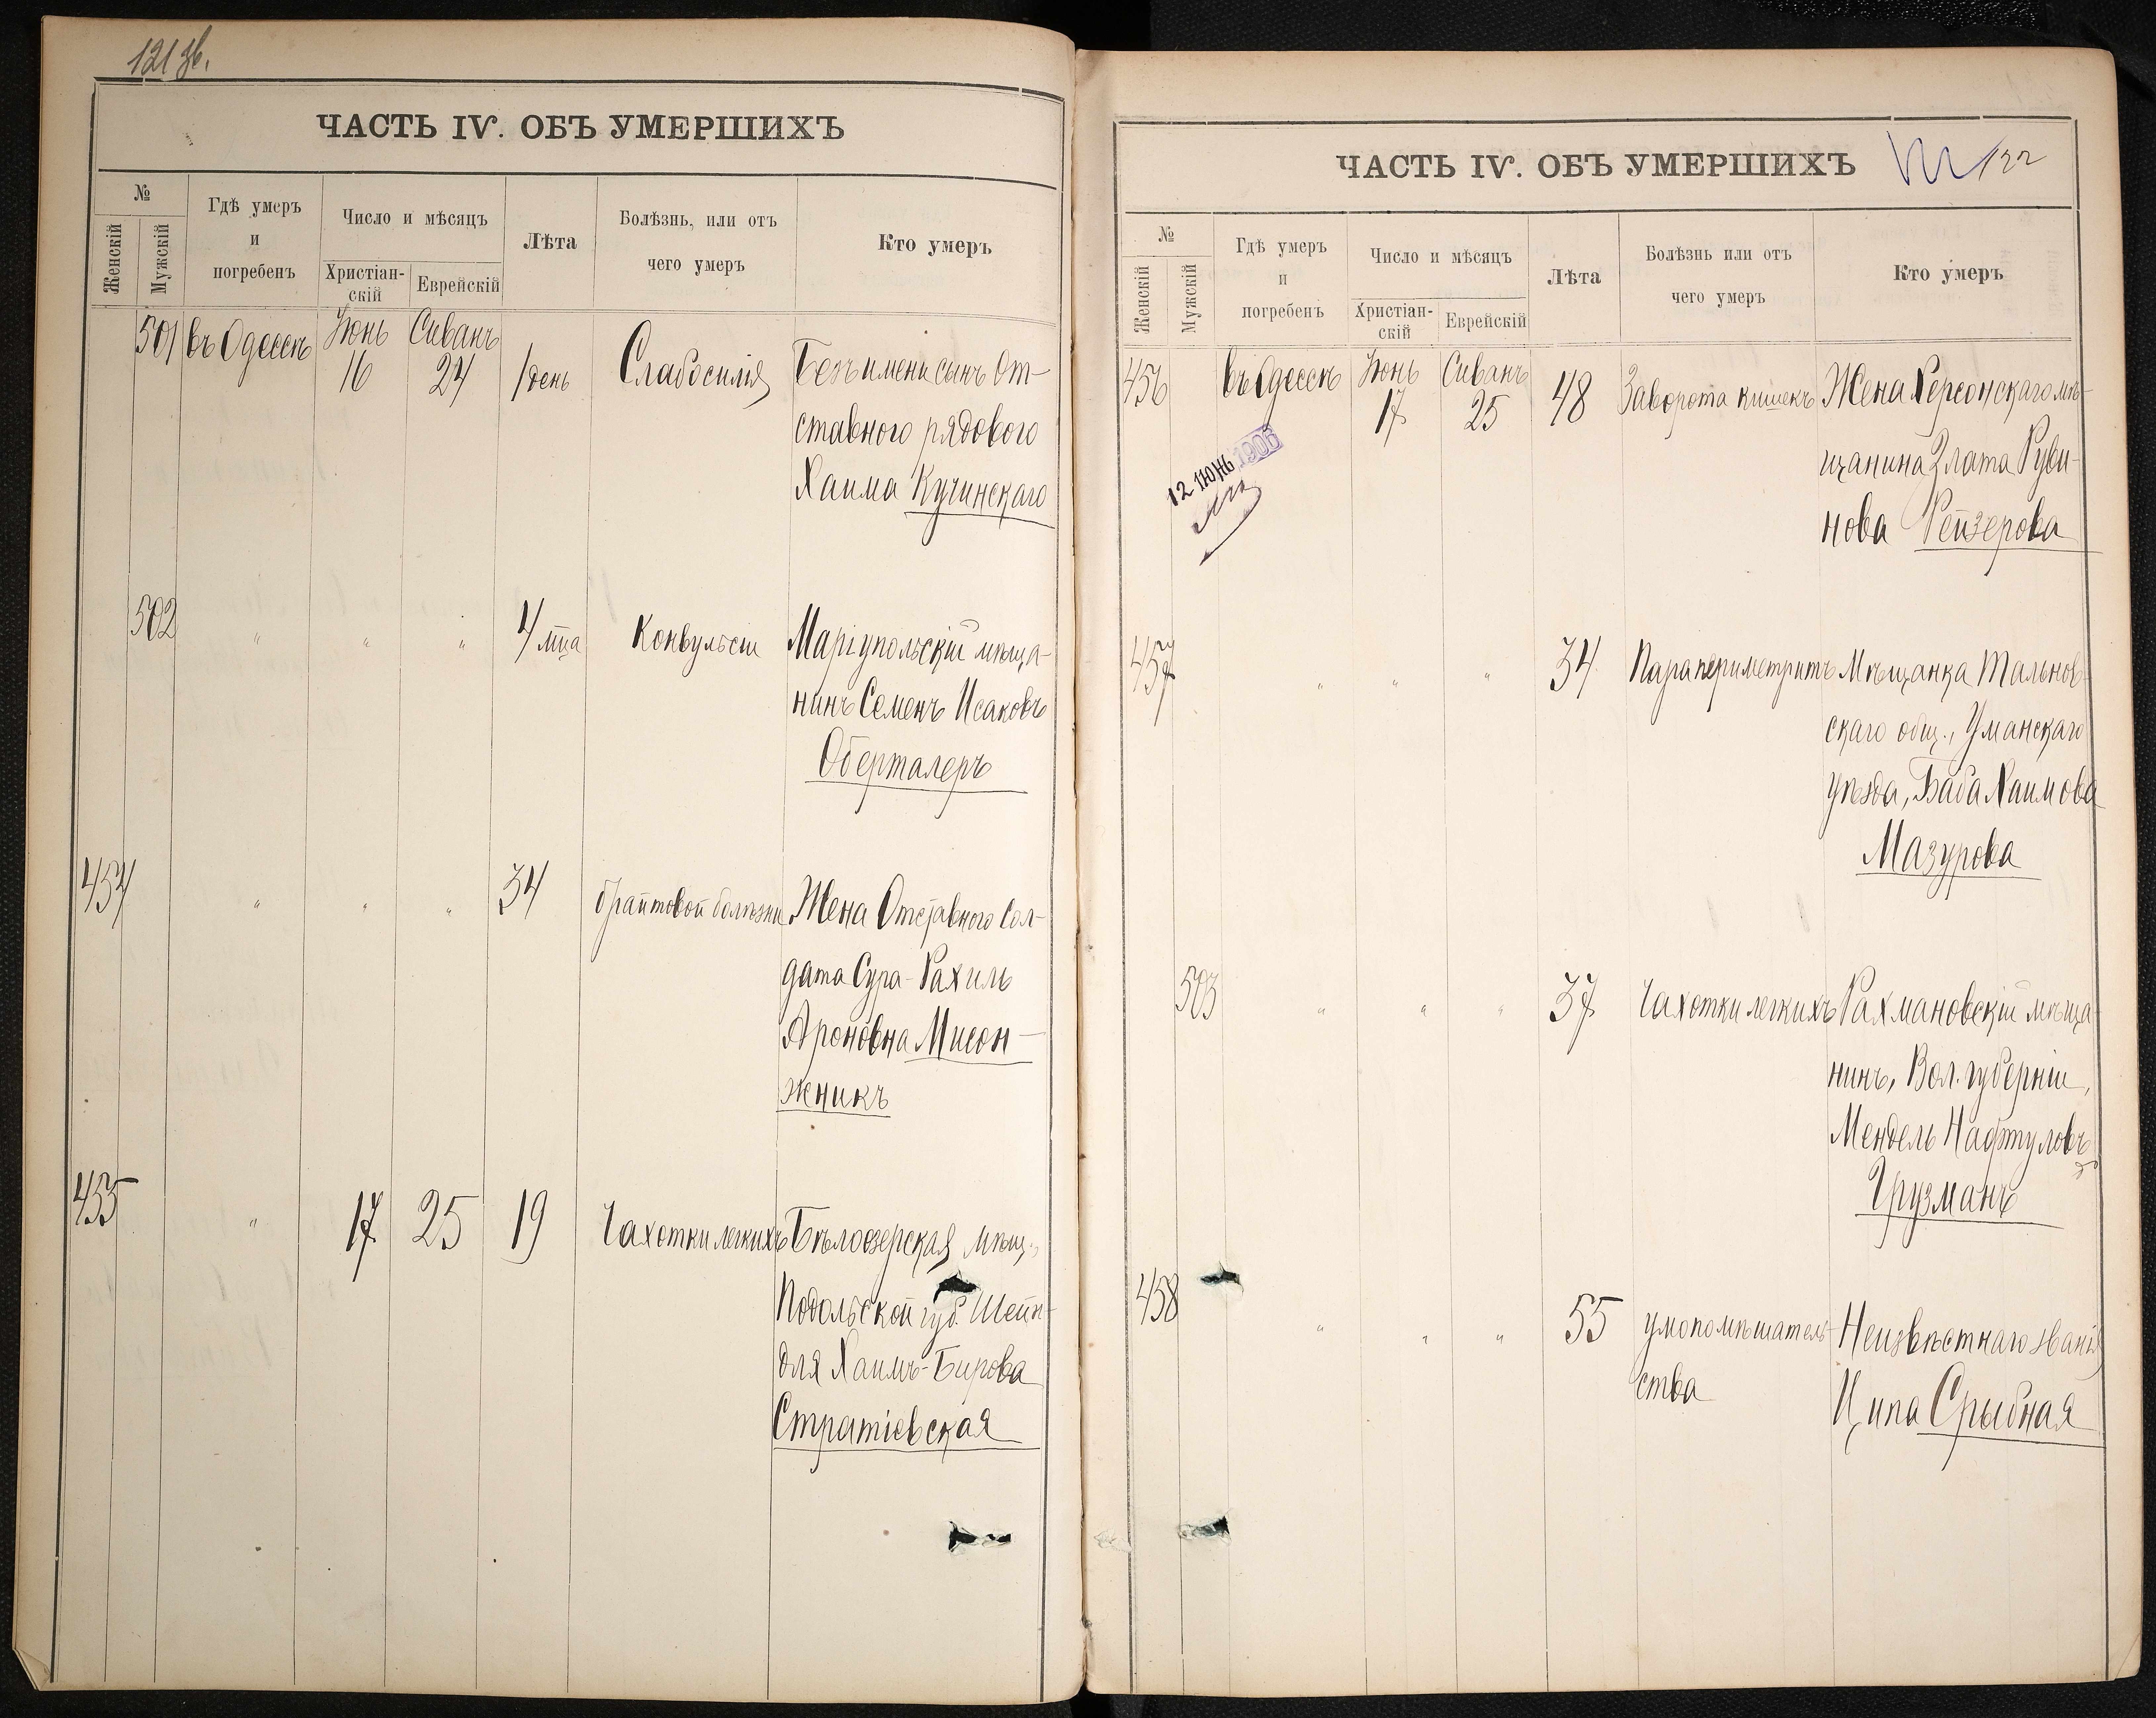 121 зв.
ЧАСТЬ IV. ОБЪ УМЕРШИХЪ
№
Женскій
Мужскій
Гдѣ умеръ
и
погребенъ
Число и мѣсяцъ
Христіан-
скій
Еврейскій
Лѣта
Болѣзнь, или отъ
чего умеръ
Кто умеръ
501 въ Одессѣ Іюнь Сиванъ
16 24 1 день Слабосилія Безъ имени сынъ От-
ставного рядового
Хаима Кучинскаго
502 " " " 4 мца Конвульсіи Маріупольскій мѣща-
нинъ Семенъ Исаковъ
Оберталеръ
454 " " " 34 брайтовой болѣзни Жена Отставного Сол-
дата Сура-Рахиль
Ароновна Мисон-
жникъ
455 " 17 25 19 Чахотки легкихъ Бѣлозерская мѣщ.,
Подольской губ. Шейн-
для Хаимъ-Бирова
Стратіевская
ЧАСТЬ IV. ОБЪ УМЕРШИХЪ
122
№
Женскій
Мужскій
Гдѣ умеръ
и
погребенъ
Число и мѣсяцъ
Христіан-
скій
Еврейскій
Лѣта
Болѣзнь или отъ
чего умеръ
Кто умеръ
456 въ Одессѣ Іюнь Сиванъ
17 25 48 Заворота кишекъ Жена Херсонскаго мѣ-
щанина Злата Руви-
нова Рейзерова
12 ІЮНЬ 1906
457 " " " 34 Парапериметритъ Мѣщанка Тальнов-
скаго общ., Уманскаго
уѣзда, Баба Хаимова
Мазурова
503 " " " 37 Чахотки легкихъ Рахмановскій мѣща-
нинъ, Вол. губерніи,
Мендель Нафтуловъ
Грузманъ
458 " " " 55 умопомѣшатель- Неизвѣстнаго званія
ства Ципа Срыбная